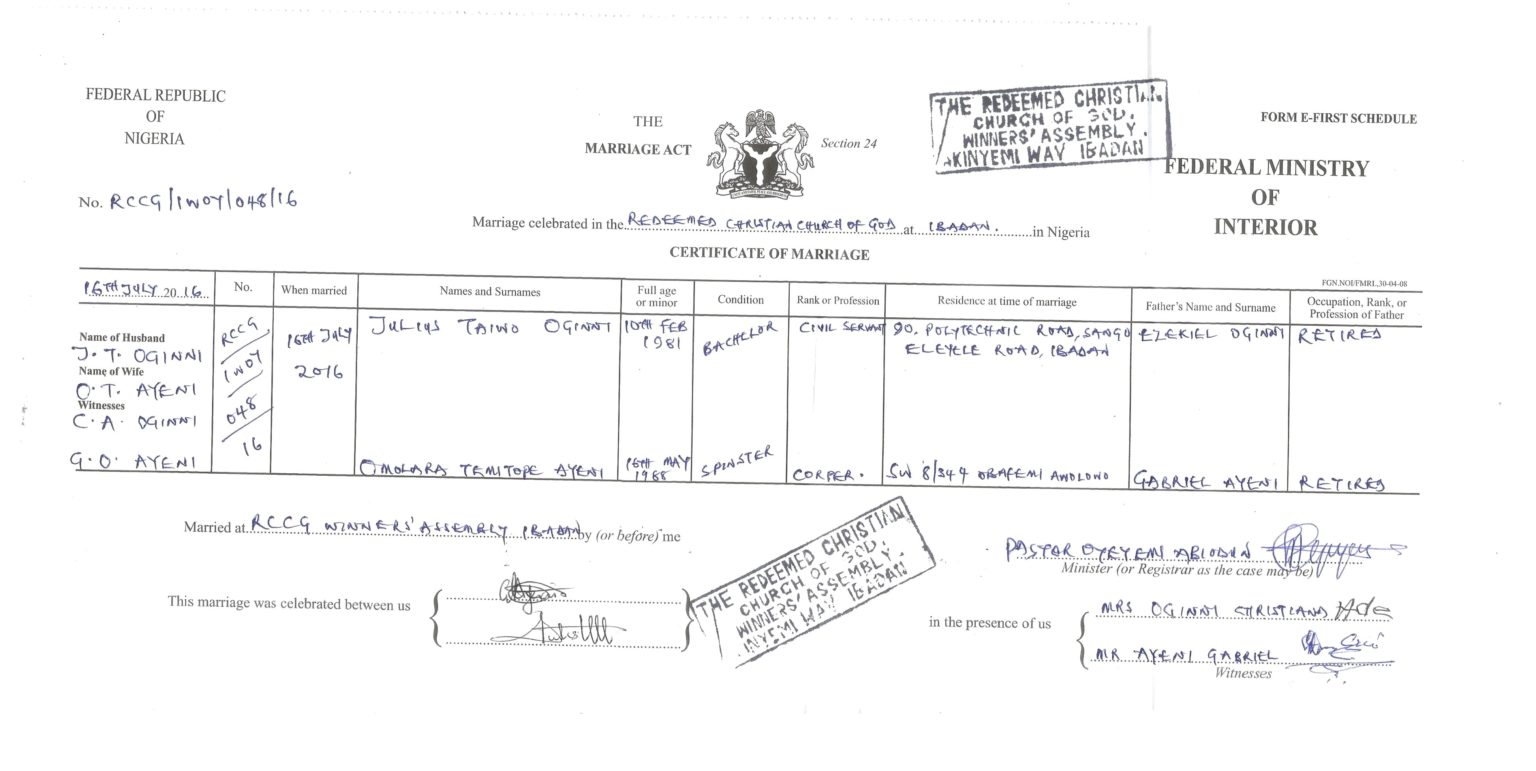 FEDERAL REPUBLIC
OF
NIGERIA
THE
MARRIAGE ACT
Section 24
THE REDEEMED CHRISTIAN
CHURCH OF GOD.
WINNERS' ASSEMBLY.
AKINYEMI WAY IBADAN
FORM E-FIRST SCHEDULE
FEDERAL MINISTRY
OF
INTERIOR
No. RCCG/IWOY/048/16
Marriage celebrated in the REDEEMED CHRISTIAN CHURCH OF GOD at IBADAN. in Nigeria
CERTIFICATE OF MARRIAGE
FGN.NOI/FMRL,30-04-08
16TH JULY 20 16 No. When married Names and Surnames Full age or minor Condition Rank or Profession Residence at time of marriage Father's Name and Surname Occupation, Rank, or Profession of Father
Name of Husband
J. T. OGINNI
Name of Wife
O. T. AYENI
Witnesses
C. A. OGINNI
G. O. AYENI
RCCG/
IWOY/
048/
16
16TH JULY
2016
JULIUS TAIWO OGINNI 10TH FEB 1981 BACHELOR CIVIL SERVANT 90. POLYTECHNIC ROAD, SANGO EZEKIEL OGINNI RETIRED
ELEYELE ROAD, IBADAN
OMOLARA TEMITOPE AYENI 16TH MAY 1988 SPINSTER CORPER. SW 8/344 OBAFEMI AWOLOWO GABRIEL AYENI RETIRED
Married at RCCG WINNERS' ASSEMBLY IBADAN by (or before) me
PASTOR OYEYEMI ABIODUN
Minister (or Registrar as the case may be)
This marriage was celebrated between us
THE REDEEMED CHRISTIAN
CHURCH OF GOD.
WINNERS' ASSEMBLY.
INYEMI WAY IBADAN
in the presence of us
MRS OGINNI CHRISTIANA
MR AYENI GABRIEL
Witnesses